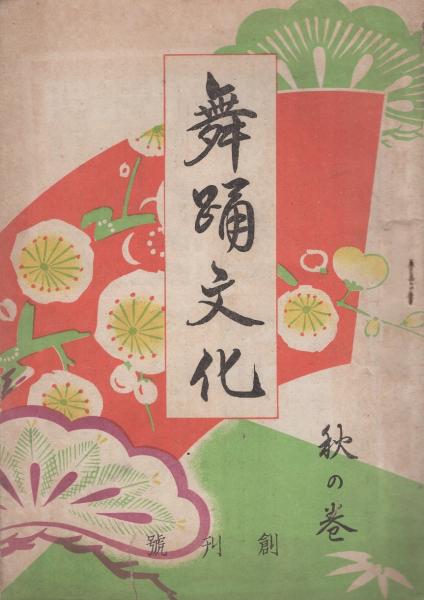 舞踊文化
秋の巻
創刊號